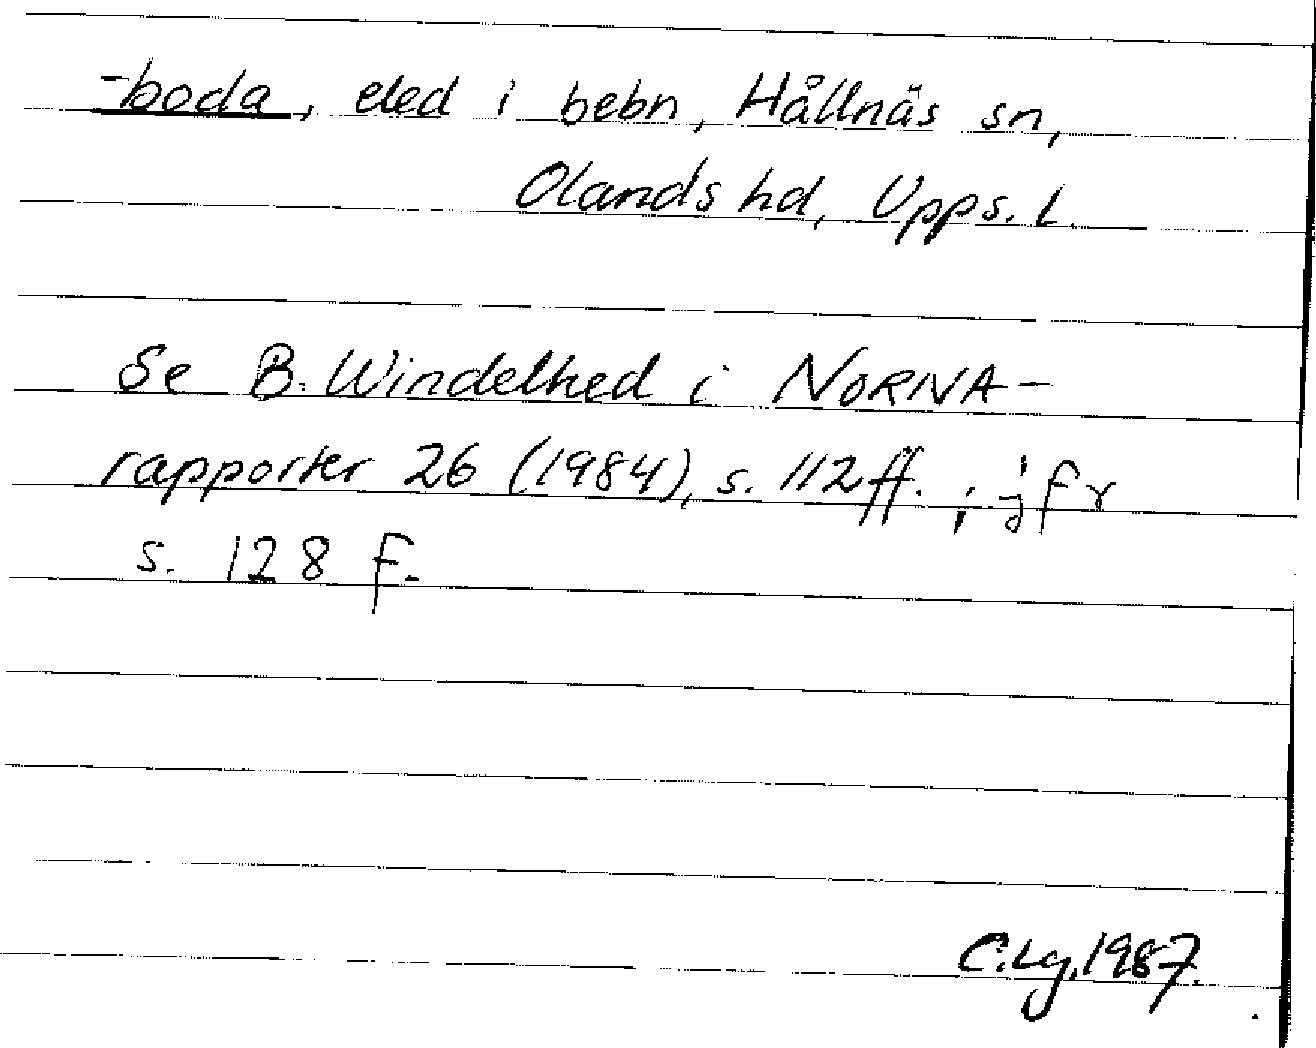 -boda, eled i bebn, Hållnäs sn,
Olands hd, Upps. l.
Se B. Windelhed i NORNA-
rapporter 26 (1984), s. 112 ff. ; jfr
s. 128 f.
C.Lg, 1987.